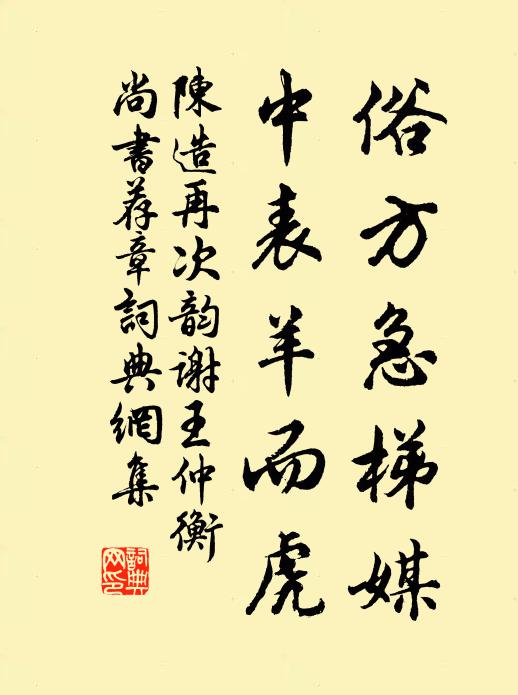 俗方急梯媒
中表羊而虎
陳造再次韵謝王仲衡
尚書荐章詞典網集
詞典网印